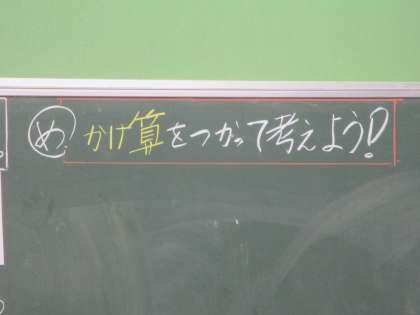 め かけ算をつかって考えよう!